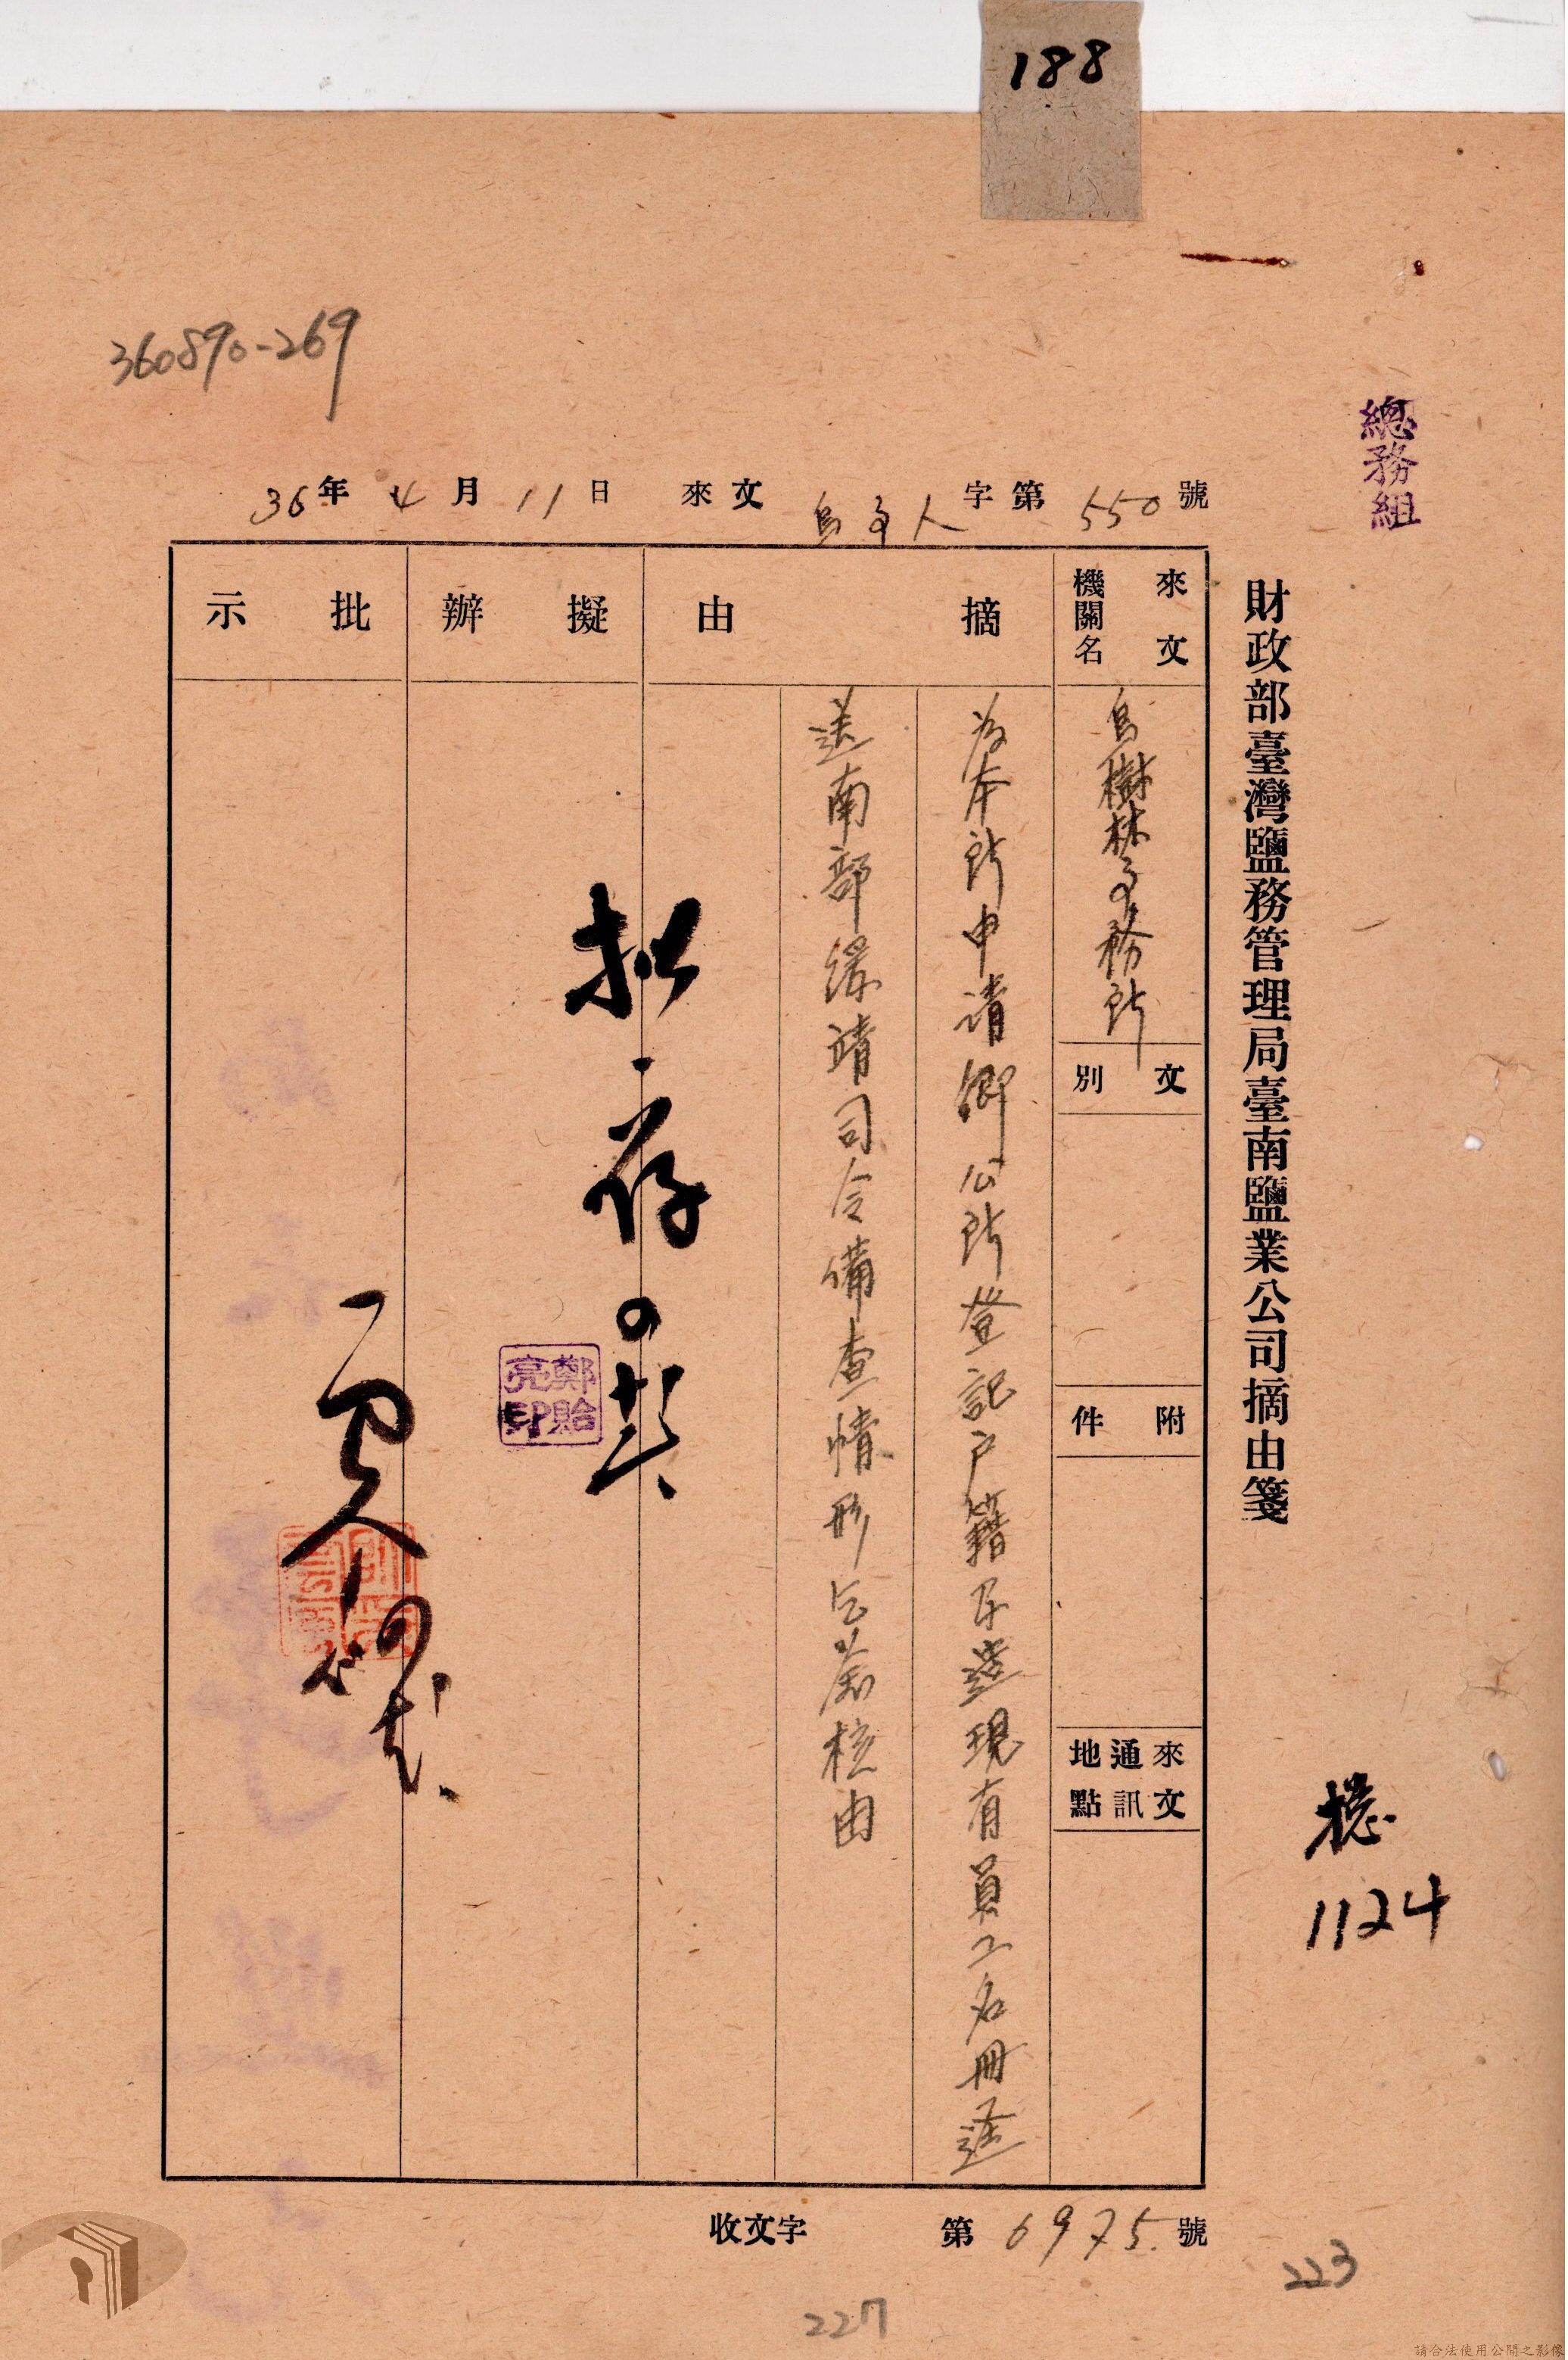 188
360890-269
總務組
財政部臺灣鹽務管理局臺南鹽業公司摘由箋
36年4月11日 來文 烏事人字第550號
來文機關名
烏樹林事務所
文別
附件
來文通訊地點
摘由
為本所申請鄉公所登記戶籍及造現有員工名冊逕
送南部綏靖司令備查情形乞鑒核由
擬辦
擬存
鄭貽亮印
批示
總
1124
收文字第6975號
223
227
請合法使用公開之影像